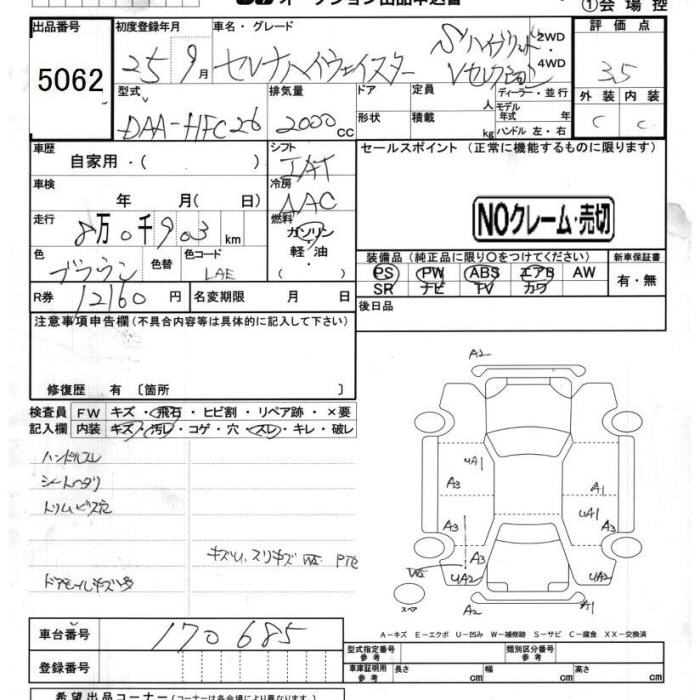 オークション出品申込書
①会場控
出品番号 初度登録年月 車名・グレード 評価点
5062 25 9月 セレナハイウェイスター Sハイブリッド Vセレクション 2WD 4WD 3.5
型式 排気量 ドア 定員 人 ディーラー・並行 外装 内装
DAA-HFC26 2000cc 形状 積載 kg モデル年式 年 ハンドル 左・右 C C
車歴 シフト セールスポイント(正常に機能するものに限ります)
自家用・( ) IAT
車検 冷房
年 月( 日) AAC
NOクレーム・売切
走行 燃料
8万0千903km ガソリン・軽油・( )
装備品(純正品に限り○をつけてください) 新車保証書
色 色替 色コード
ブラウン LAE
PS PW ABS エアB AW 有・無
SR ナビ TV カワ
R券 12160円 名変期限 月 日 後日品
注意事項申告欄(不具合内容等は具体的に記入して下さい)
修復歴 有〔箇所 〕
検査員 FW キズ・飛石・ヒビ割・リペア跡・×要
記入欄 内装 キズ・汚レ・コゲ・穴・スレ・キレ・破レ
ハンドルスレ
シートヘタリ
トリムビス穴
キズU、スリキズ WE PTE
ドアモールキズ多
A2
UA1
A3
A1
A3
UA1
A3
A3
WE
UA2
UA2
スペア
A2
A1
A-キズ E-エクボ U-凹み W-補修跡 S-サビ C-腐食 XX-交換済
車台番号 170685
型式指定番号 参考 類別区分番号 参考
登録番号 車庫証明用 参考 長さ cm 幅 cm 高さ cm
希望出品コーナー